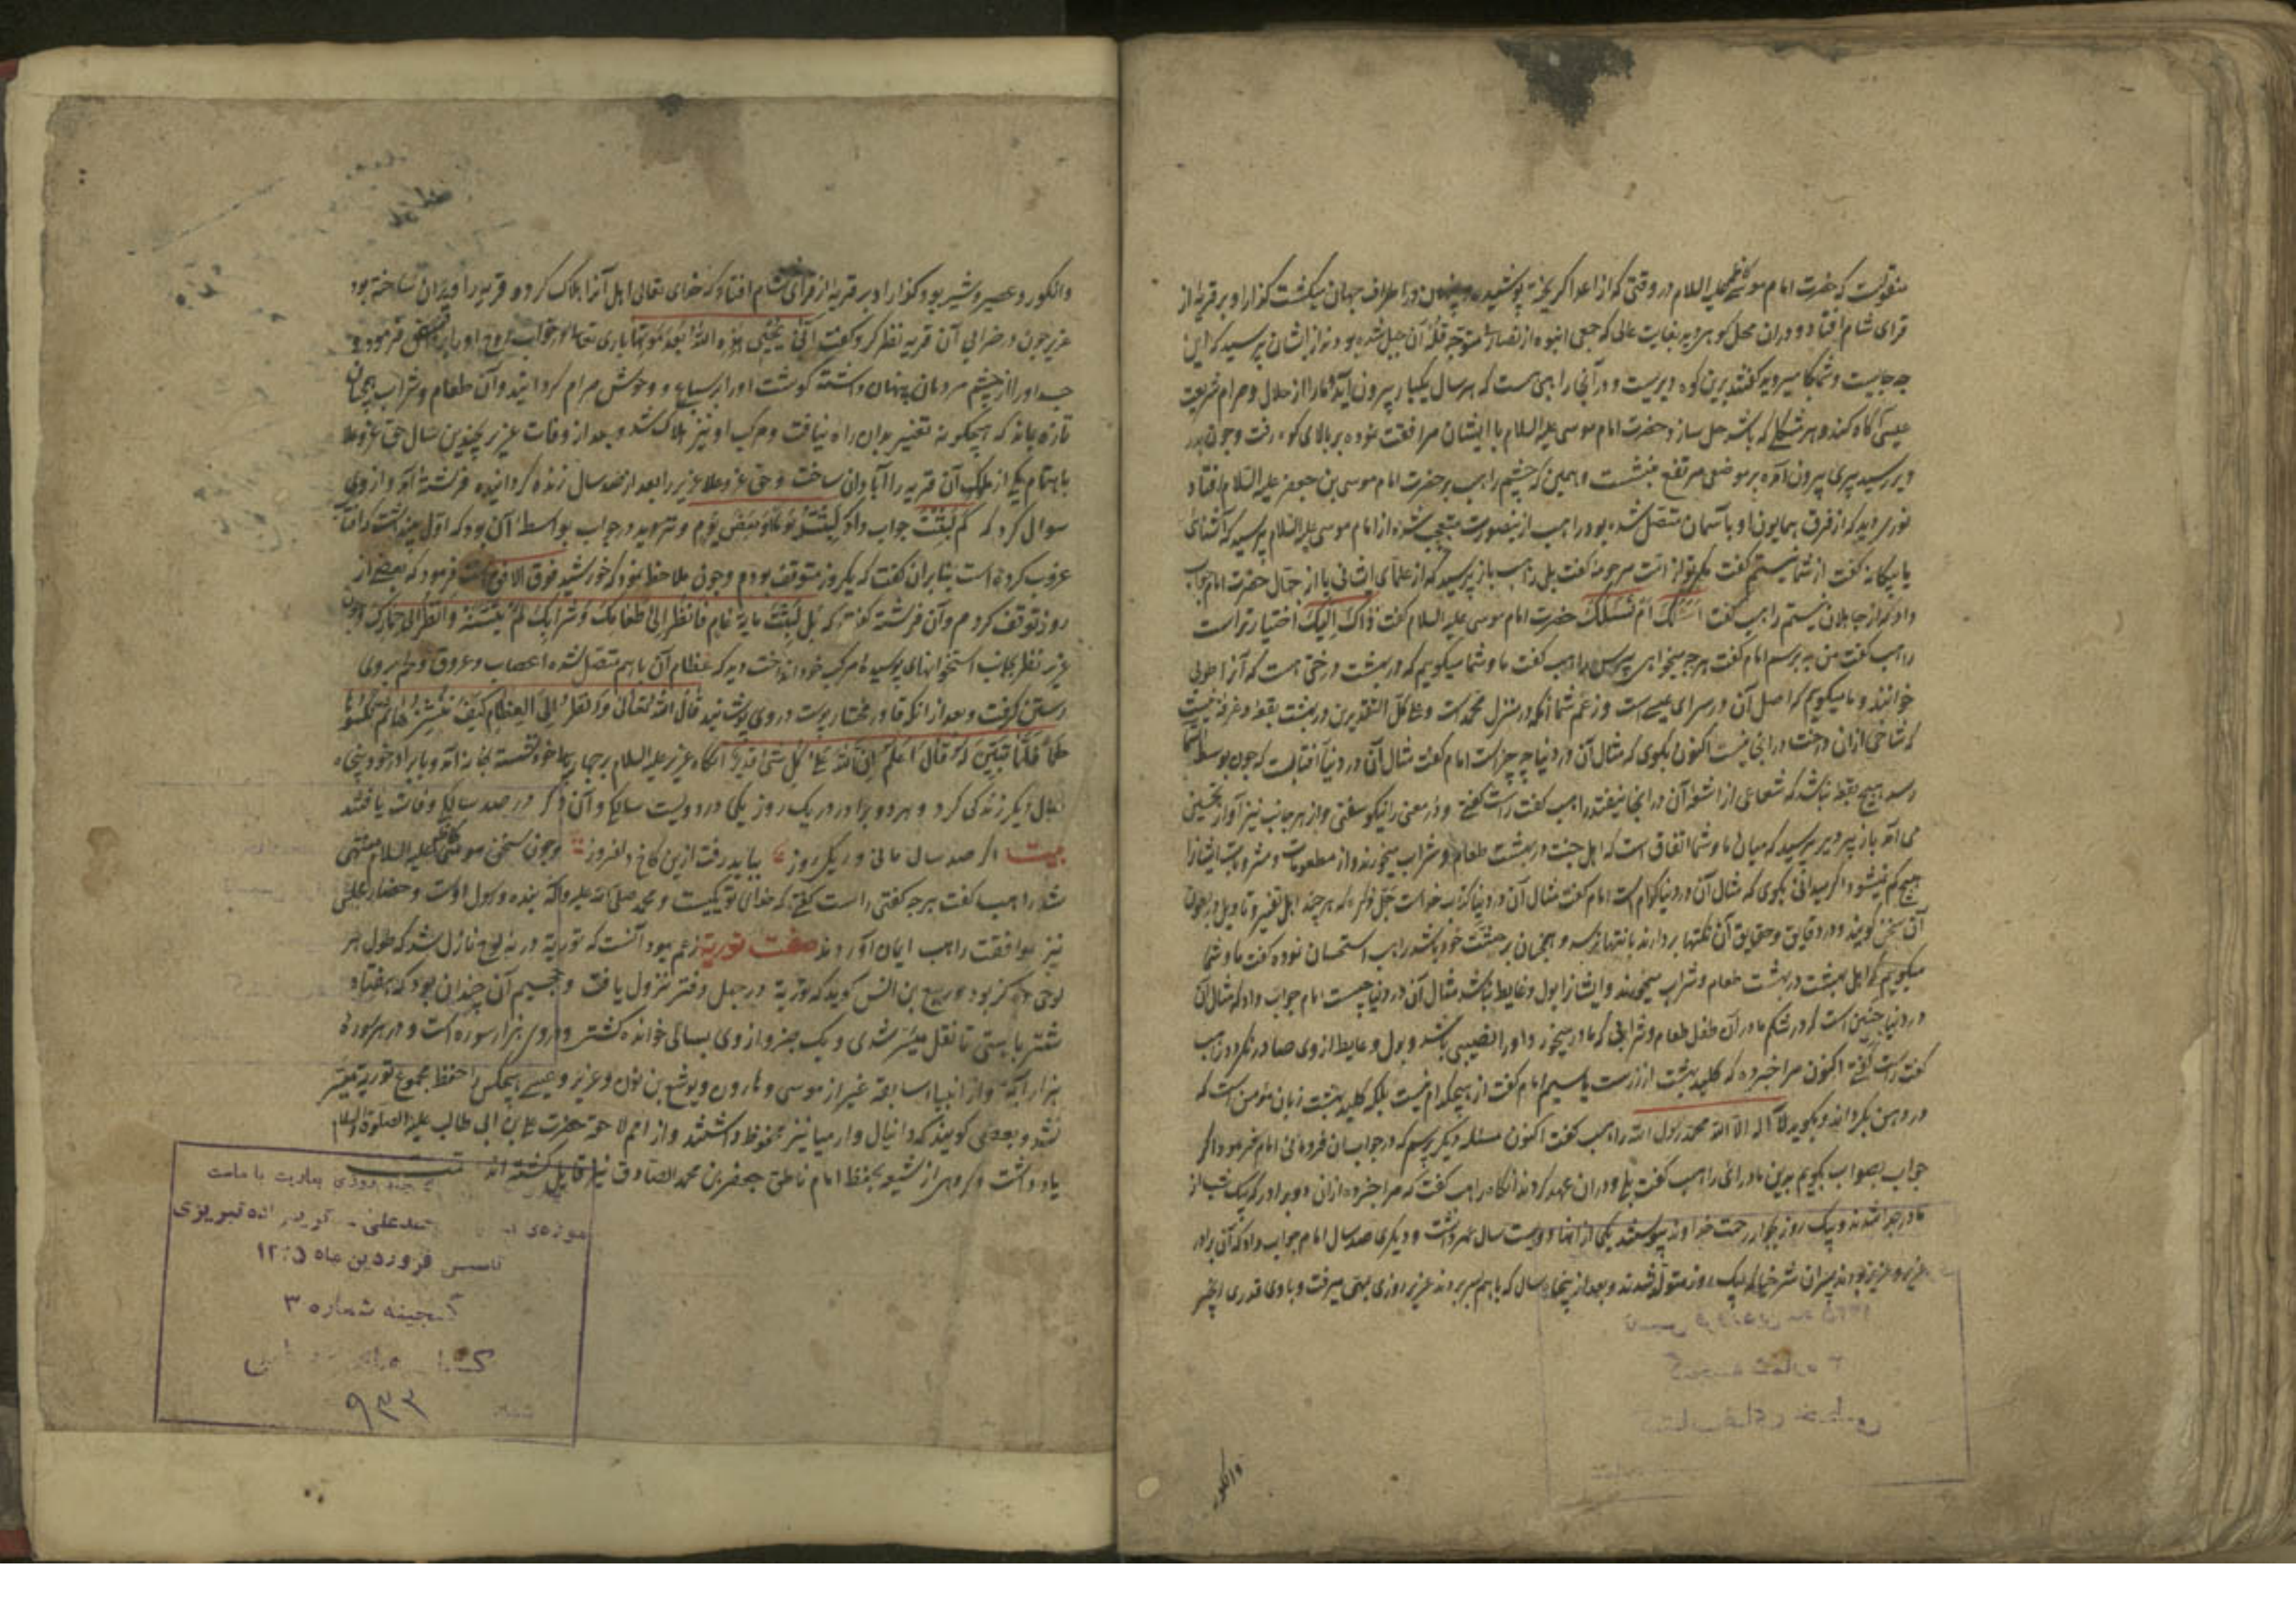 منقولست که حضرت امام موسی کاظم علیه السلام در وقتی که از اعدا گریخته پوشیده و پنهان در اطراف جهان میگشت گذار او بر قریهٔ از
قرای شام افتاد و در آن محل کوهی دید بغایت عالی که جمعی انبوه از نصارا متوجه قلهٔ آن جبل شده بودند از ایشان پرسید که این
چه جاییست و شما کجا میروید گفتند برین کوه دیریست و در آنجا راهبی هست که هر سال یکبار بیرون آید و ما را از حلال و حرام شریعت
عیسی آگاه کند و هر مشکلی که باشد حل سازد حضرت امام موسی علیه السلام با ایشان مرافقت نموده بر بالای کوه رفت و چون بدر
دیر رسید پیری بیرون آمده بر موضعی مرتفع بنشست و همین که چشم راهب بر حضرت امام موسی بن جعفر علیه السلام افتاد
نوری دید که از فرق همایون او با آسمان متصل شده بود راهب ازینصورت متعجب شده از امام موسی علیه السلام پرسید که آشنائی
یا بیگانه گفت از شما نیستم گفت مگر تو از امت مرحومه گفت بلی راهب باز پرسید که از علمای ایشانی یا از جهال حضرت امام جواب
داد که از جاهلان نیستم راهب گفت اسئلک ام تسئلک حضرت امام موسی علیه السلام گفت ذاک الیک اختیار تراست
راهب گفت من بپرسم امام گفت هر چه میخواهی بپرس راهب گفت ما و شما میگوییم که در بهشت درختی هست که آنرا طوبی
خوانند و ما میگوییم که اصل آن در سرای عیسی است و زعم شما آنکه در منزل محمد است و علی کل التقدیرین در بهشت بقعه و غرفه نیست
که شاخی از آن درخت در آنجا نیست اکنون بگوی که مثال آن در دنیا چه چیز است امام گفت مثال آن در دنیا آفتابست که چون بوسط السما
رسد هیچ بقعه نباشد که شعاعی از اشعهٔ آن در آنجا نیفتد راهب گفت راست گفتی و در معنی را نیکو سفتی و از هر جانب نیز آواز تحسین
می آمد باز پیر دیر پرسید که میان ما و شما اتفاق است که اهل جنت در بهشت طعام و شراب میخورند و از مطعومات و مشروبات ایشانرا
هیچ کم نمیشود اگر میدانی بگوی که مثال آن در دنیا کدام است امام گفت مثال آن در دنیا کتاب خداست جل ذکره که هر چند اهل تفسیر و تاویل در بطون
آن سخن گویند و در دقایق و حقایق آن نکتها بردارند بانتها نرسد و همچنان بر حشمت خود باشد راهب استحسان نموده گفت ما و شما
میگوییم که اهل بهشت در بهشت طعام و شراب میخورند و ایشانرا بول و غایط نباشد مثال آن در دنیا چیست امام جواب داد که مثال آن
در دنیا جنین است که در شکم مادر آن طفل طعام و شرابی که مادر میخورد او را نصیبی باشد و بول و غایط از وی صادر نگردد راهب
گفت راست گفتی اکنون مرا خبر ده که کلید بهشت از زرست یا سیم امام گفت از هیچکدام نیست بلکه کلید بهشت زبان مؤمن است که
در دهن بگرداند و بگوید لا اله الا الله محمد رسول الله راهب گفت اکنون مسئله دیگر پرسم که در جواب آن فرومانی امام فرمود اگر
جواب بصواب بگویم بدین ما درآئی راهب گفت بلی و در آن عهد کردند آنگاه راهب گفت که مرا خبر ده از آن دو برادر که بیک شب از
مادر جدا شدند و بیک روز بجوار رحمت خداوند پیوستند یکی از آنها دویست سال عمر داشت و دیگری صد سال امام جواب داد که آن برادر
عزیر و عزیز بودند پسران شرخیا که بیک روز متولد شدند و بعد از پنجاه سال که با هم بسر بردند عزیر روزی بمهمی میرفت و با وی قدری انجیر
وانگور
وانگور و عصیر و شیر بود گذار او بر قریهٔ از قرای شام افتاد که خدای تعالی اهل آنرا هلاک کرده و قریه را ویران ساخته بود
عزیر چون در خرابی آن قریه نظر کرد گفت انّی یحیی هذه الله بعد موتها باری تعالی در خواب روح او را قبض فرمود و
جسد او را از چشم مردمان پنهان داشته گوشت او را بر سباع و وحوش حرام گردانید و آن طعام و شراب همچنان
تازه بماند که هیچگونه تغییر بدان راه نیافت و مرکب او نیز هلاک شد و بعد از وفات عزیر بچندین سال حق عز و علا
باهتمام یکی از ملوک آن قریه را آبادان ساخت و حق عز و علا عزیر را بعد از صد سال زنده گردانیده فرشته آمد و از وی
سوال کرد که کم لبثت جواب داد لبثت یوما او بعض یوم و تردید در جواب بواسطهٔ آن بود که اول پنداشت که آفتاب
غروب کرده است بنابران گفت که یکروز متوقف بودم و چون ملاحظه نمود که خورشید فوق الافق است فرمود که بعضی از
روز توقف کردم و آن فرشته گفت که بل لبثت مایة عام فانظر الی طعامک و شرابک لم یتسنه و انظر الی حمارک و چون
عزیر نظر بجانب استخوانهای پوسیدهٔ مرکب خود انداخت دید که عظام آن با هم متصل شده اعصاب و عروق و لحم بروی
رستن گرفت و بعد از آنکه قادر مختار پوست در وی پوشانید قال الله تعالی وانظر الی العظام کیف ننشزها ثم نکسوها
لحما فلما تبین له قال اعلم ان الله علی کل شی قدیر آنگاه عزیر علیه السلام بر حمار خود نشسته بخانه آمد و با برادر خود پنجاه
سال دیگر زندگی کرد و هر دو برادر در یک روز یکی در دویست سالگی و آن دگر در صد سالگی وفات یافتند
بیت اگر صد سال مانی ور یکی روز بباید رفت ازین کاخ دلفروز و چون سخن موسی کاظم علیه السلام منتهی
شد راهب گفت هر چه گفتی راست گفتی که خدای تو یکیست و محمد صلی الله علیه و آله بنده و رسول اوست و حضار مجلس
نیز بموافقت راهب ایمان آوردند صفت توریة زعم یهود آنست که توریة در نه لوح نازل شد که طول هر
لوحی ده گز بود و ربیع بن انس گوید که توریة در چهل دفتر نزول یافت و تجسیم آن چندان بود که هفتاد
شتر بایستی تا نقل میسر شدی و یک جزو از وی بسالی خوانده گشتی و در وی هزار سوره است و در هر سورهٔ
هزار آیة و از انبیاء سابقه غیر از موسی و هارون و یوشع بن نون و عزیر و عیسی هیچکس را حفظ مجموع توریة میسر
نشد و بعضی گویند که دانیال و ارمیا نیز محفوظ داشتند و از امم لاحقه حضرت علی بن ابی طالب علیه الصلوة والسلام
یاد داشت و گروهی از شیعه بحفظ امام ناطق جعفر بن محمد الصادق نیز قایل گشته اند تمت
تبریزی
تاسیس فروردین ماه
گنجینه شماره ۳
۹۳۲